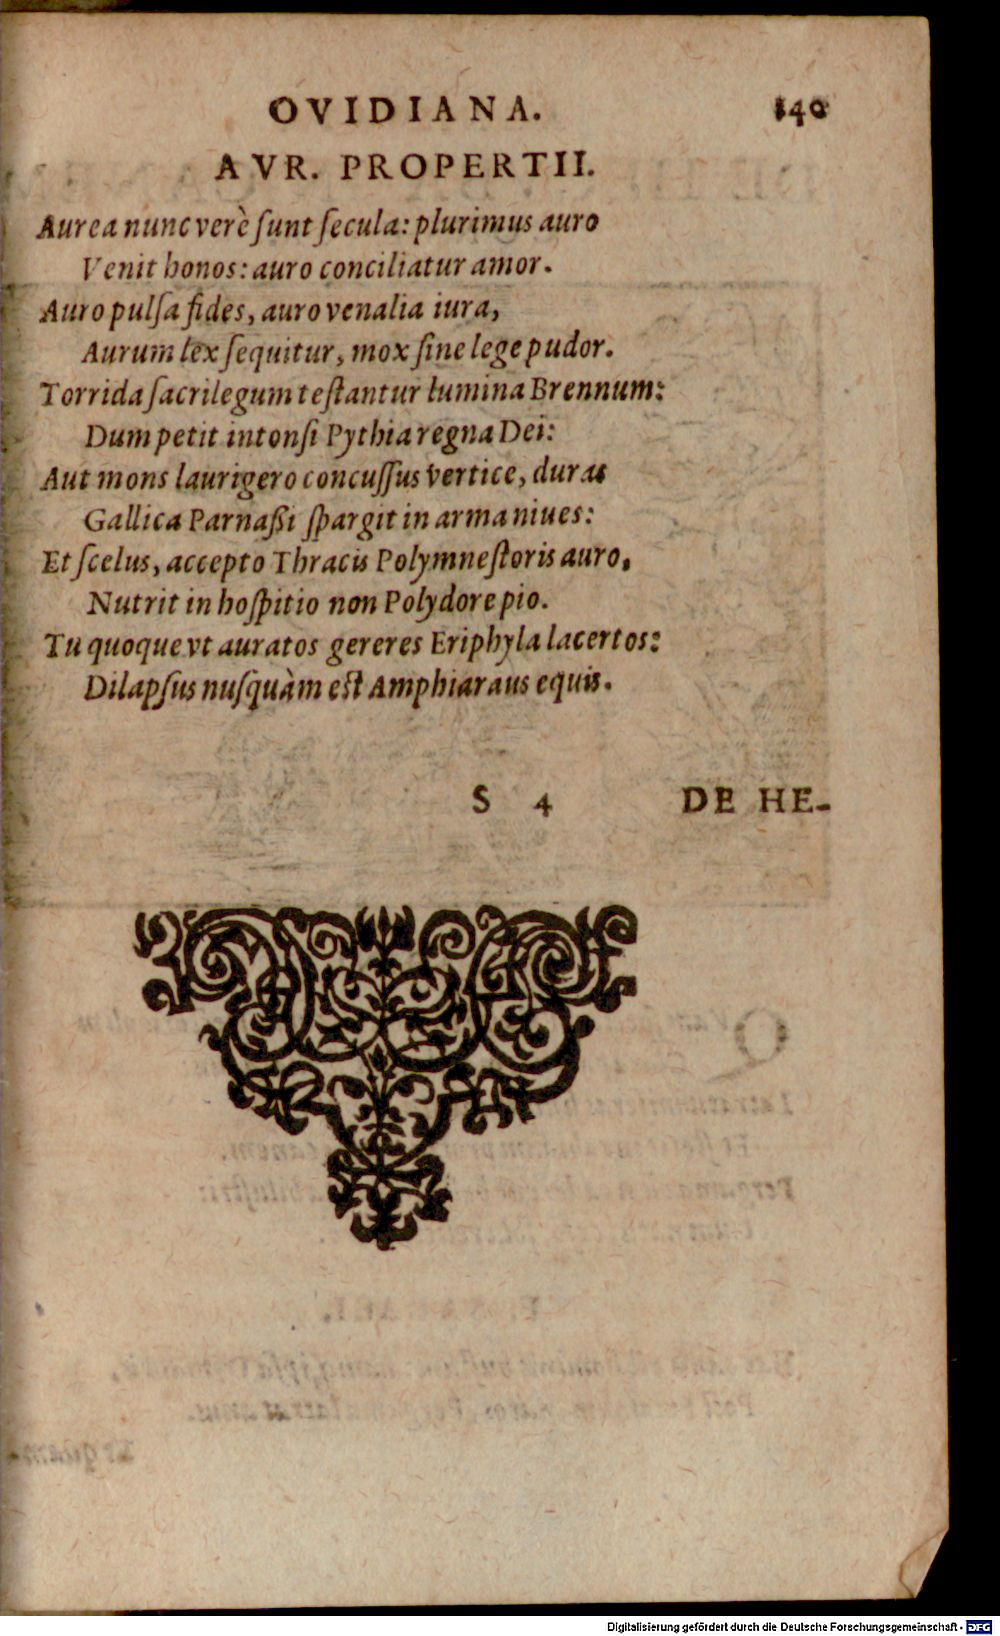 OVIDIANA. 140
AVR. PROPERTII.
Aurea nunc verè ſunt ſecula: plurimus auro
Venit honos: auro conciliatur amor.
Auro pulſa fides, auro venalia iura,
Aurum lex ſequitur, mox ſine lege pudor.
Torrida ſacrilegum teſtantur lumina Brennum:
Dum petit intonſi Pythia regna Dei:
Aut mons laurigero concuſſus vertice, duras
Gallica Parnaßi ſpargit in arma niues:
Et ſcelus, accepto Thracis Polymneſtoris auro,
Nutrit in hoſpitio non Polydore pio.
Tu quoque vt auratos gereres Eriphyla lacertos:
Dilapſus nuſquàm eſt Amphiaraus equis.
S 4 DE HE-
Digitalisierung gefördert durch die Deutsche Forschungsgemeinschaft - DFG